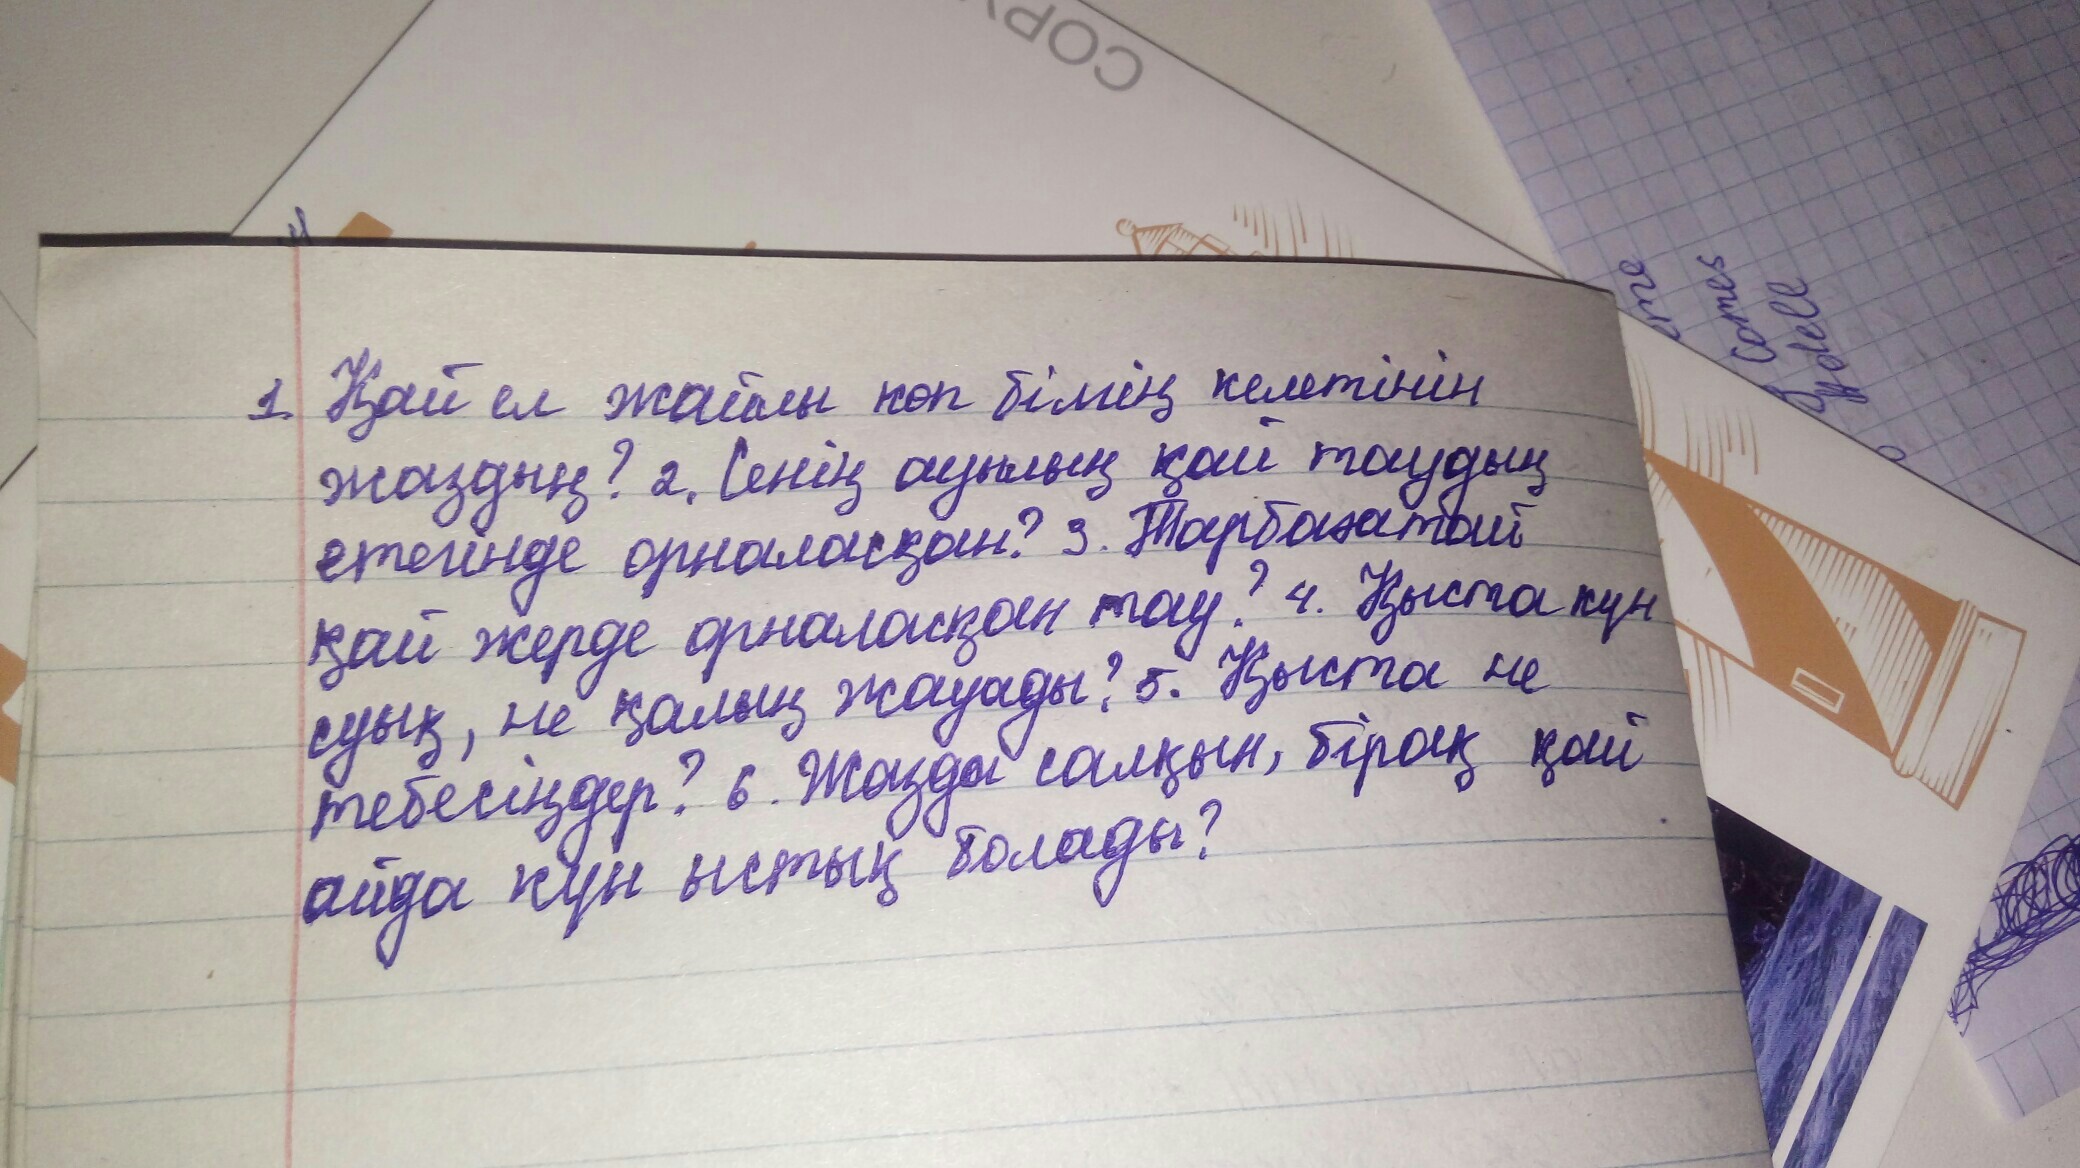 COPY
1. Қай ел жайлы көп білгің келетінін
жаздың? 2. Сенің ауылың қай таудың
етегінде орналасқан? 3. Тарбағатай
қай жерде орналасқан тау? 4. Қыста күн
суық, не қалың жауады? 5. Қыста не
тебесіңдер? 6. Жазда салқын, бірақ қай
айда күн ыстық болады?
comes